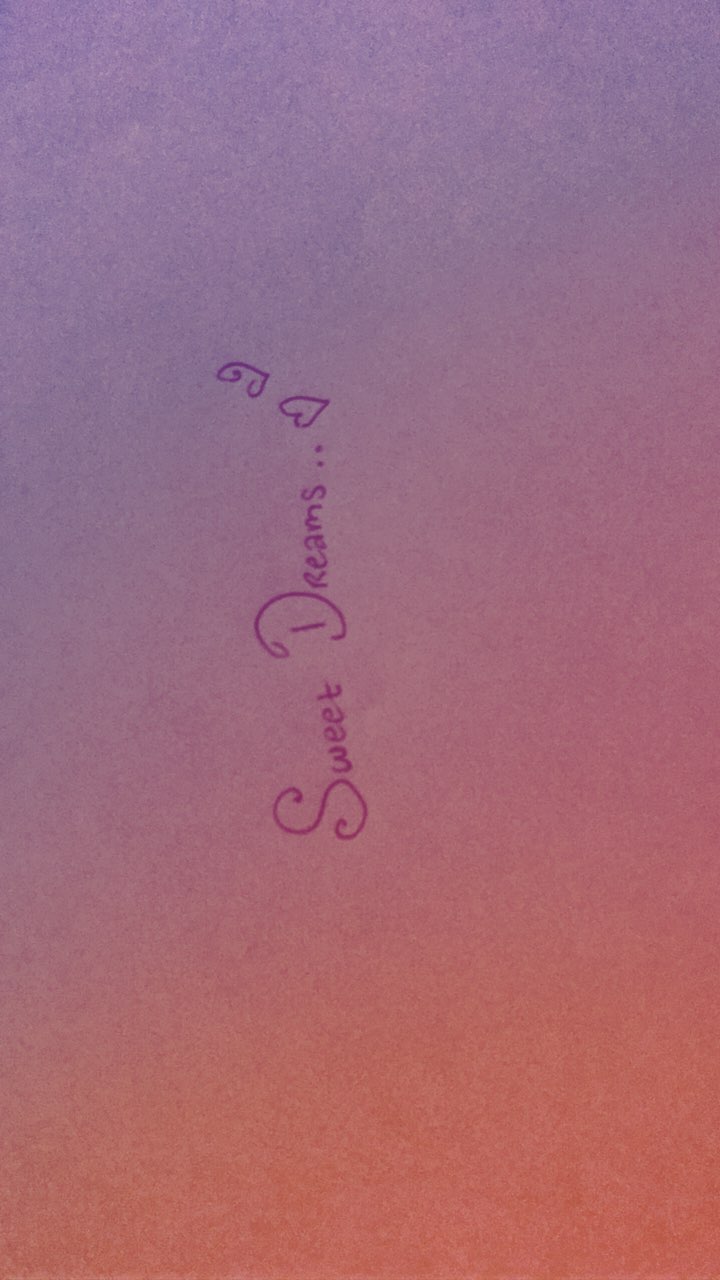 Sweet Dreams..